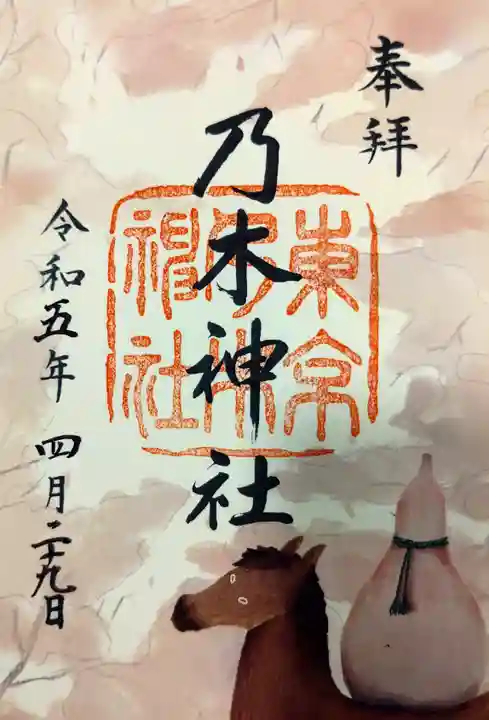 奉拝
乃木神社
東京
乃木
神社
令和五年 四月二十九日